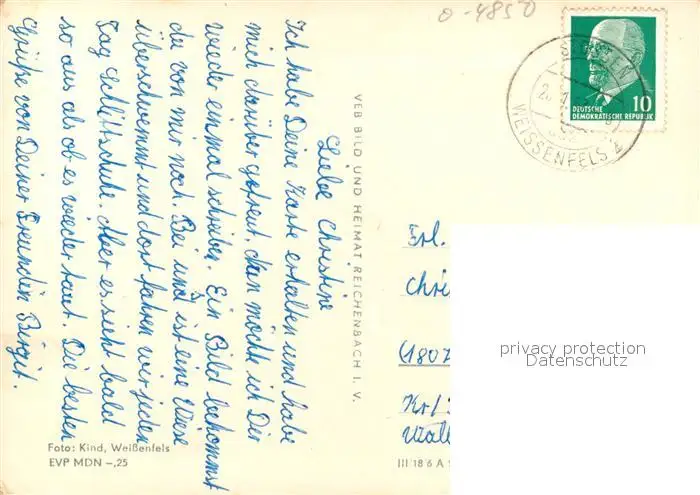 0-4850
WEISSENFELS 2
10
DEUTSCHE
DEMOKRATISCHE REPUBLIK
Liebe Christine
Ich habe Deine Karte erhalten und habe
mich darüber gefreut. Nun möcht ich Dir
wieder einmal schreiben. Ein Bild bekommst
du von mir noch. Bei uns ist eine Wiese
überschwemmt und dort fahren wir jeden
Tag Schlittschuhe. Aber es sieht bald
so aus als ob es wieder taut. Die besten
Grüße von Deiner Freundin Birgit.
VEB BILD UND HEIMAT REICHENBACH I. V.
Frl.
Chri
(1807
Kr/
privacy protection
Datenschutz
Foto: Kind, Weißenfels
EVP MDN -,25
III 18 6 A